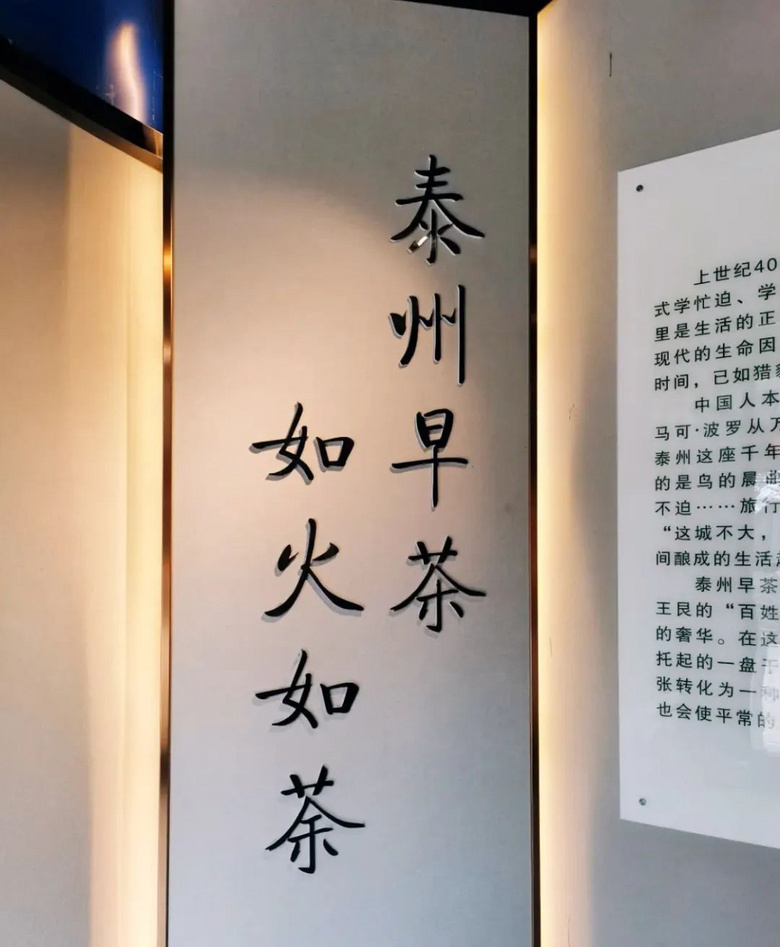 泰州早茶
如火如荼
上世纪40
式学忙迫、学
里是生活的正
现代的生命因
时间，已如猎
中国人本
马可·波罗从万
泰州这座千年
的是鸟的晨曲
不迫……旅行
“这城不大，
间酿成的生活
泰州早茶
王艮的“百姓
的奢华。在这
托起的一盘干
张转化为一种
也会使平常的